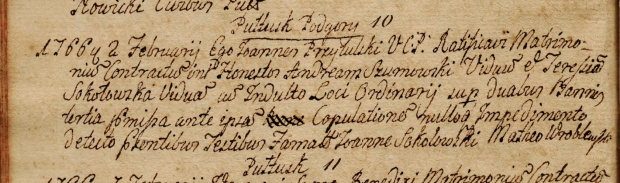 Nowicki Curbus Pult
Pułtusk Podgory 10
1766 y 2 Februarij Ego Joannes Przytulski V.C.P: Ratificavi Matrimo-
niu Contractu int Honestos Andream Szumowski Viduu et Teressia
Sokołowska Vidua cu Indulto Loci Ordinarij sup duabus Bannis
tertia omissa ante ipsa Copulatione nulloq Impedimento
detecto pſentibus Testibus Joanne Sokolowski Matheo Wroblewski
Pułtusk 11
Februarij Benedixi Matrimoniu Contractu